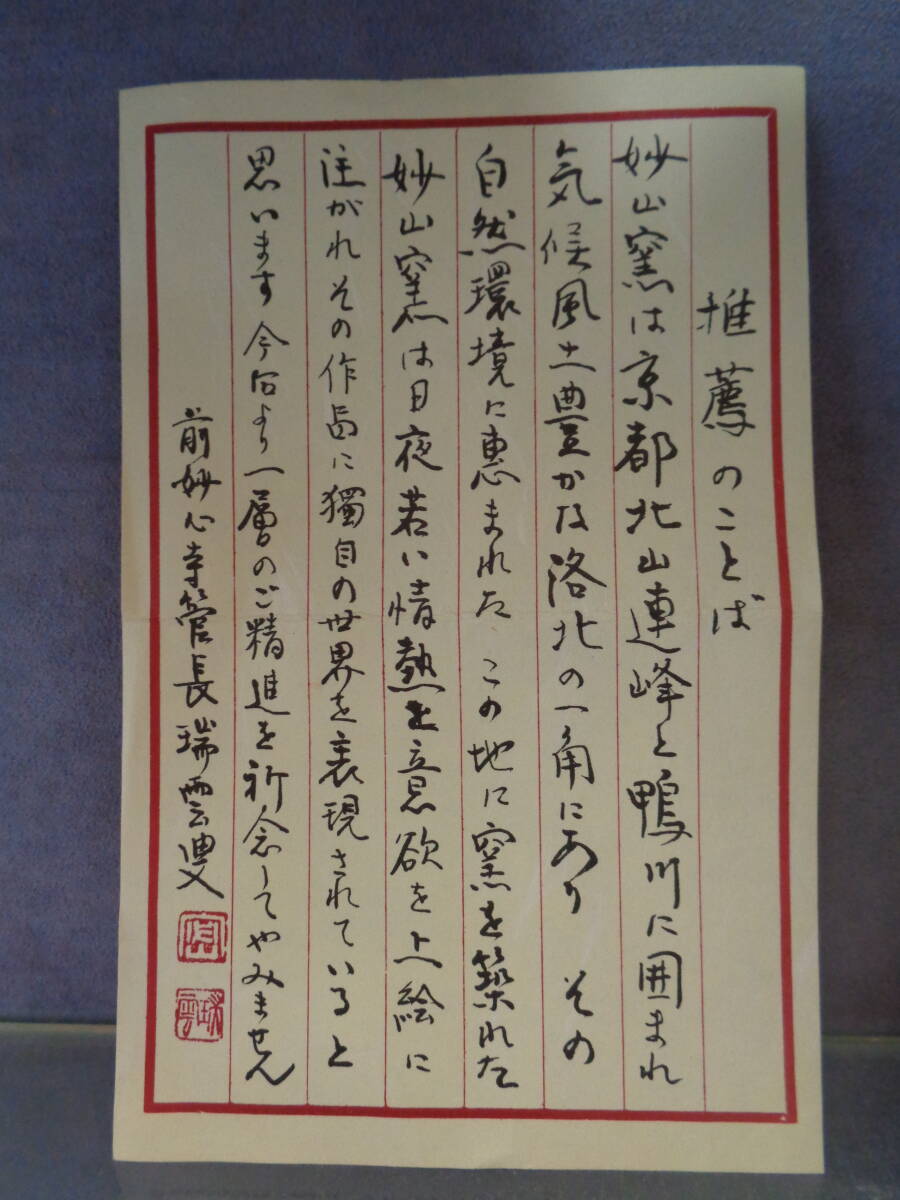 推薦のことば
妙山窯は京都北山連峰と鴨川に囲まれ
気候風土豊かな洛北の一角にあり その
自然環境に恵まれた この地に窯を築れた
妙山窯は日夜若い情熱と意欲を上絵に
注がれその作品に獨自の世界を表現されていると
思います今后より一層のご精進を祈念してやみません
前妙心寺管長瑞雲叟